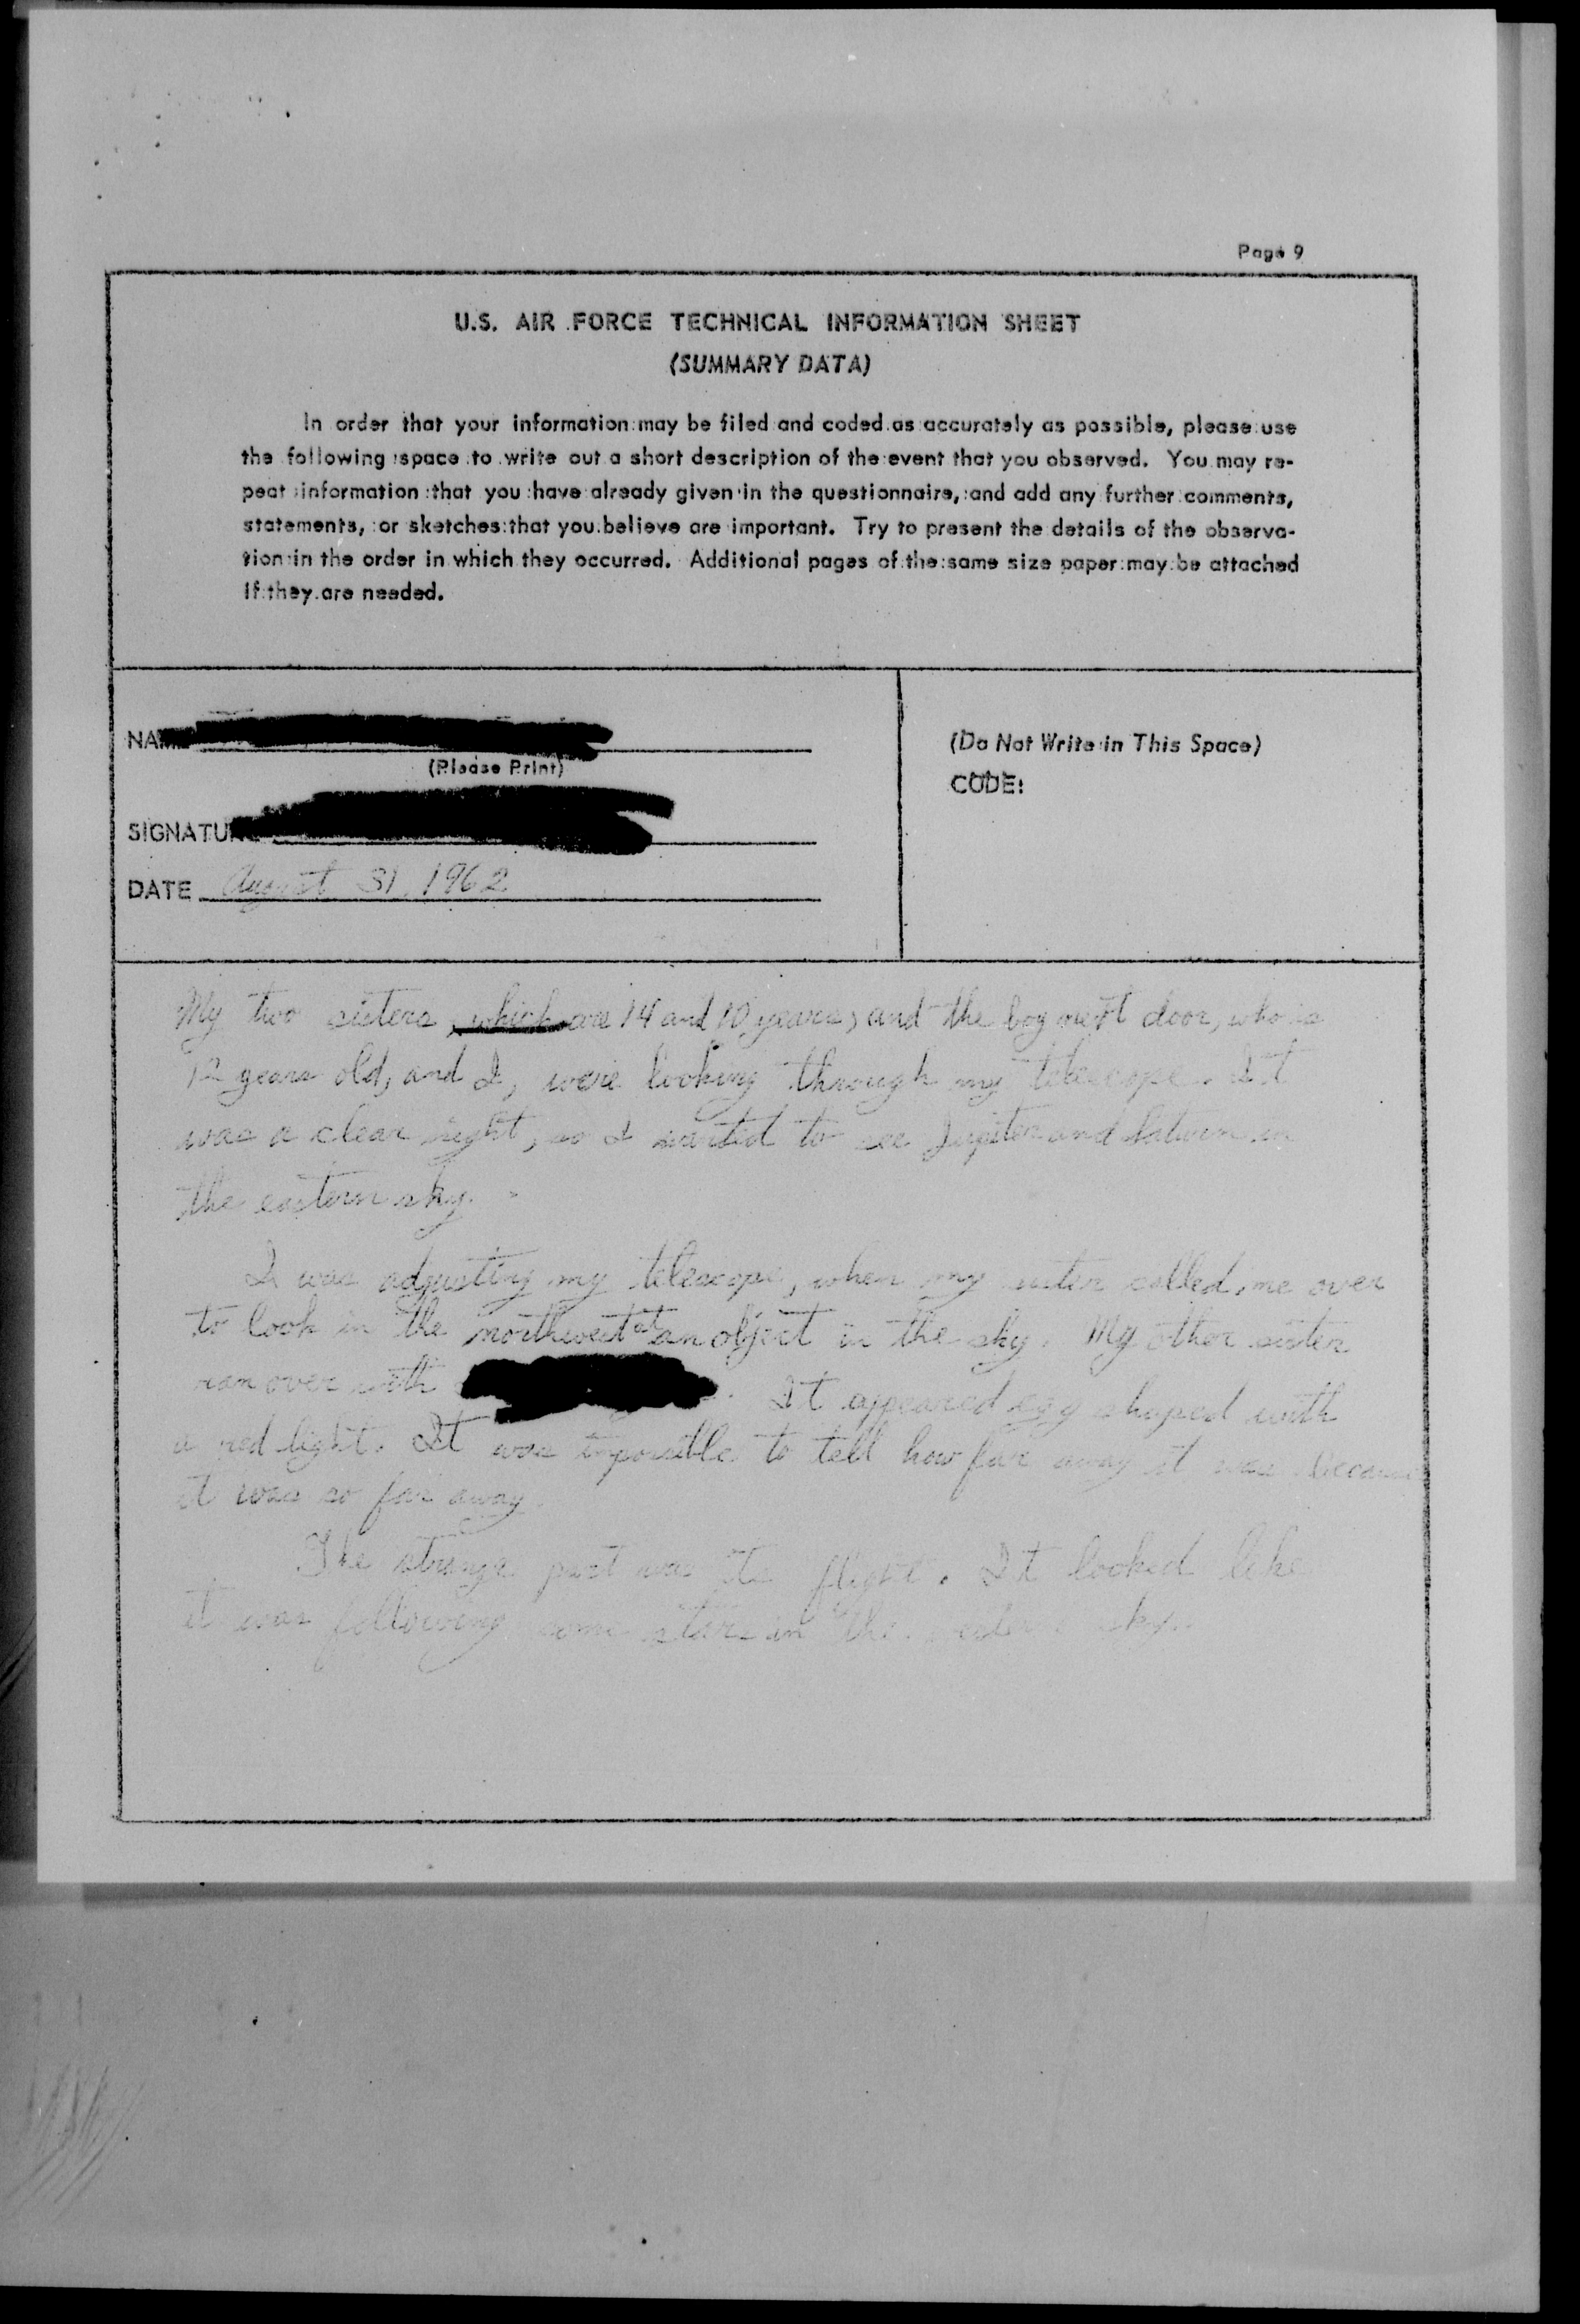 Page 9
U.S. AIR FORCE TECHNICAL INFORMATION SHEET
(SUMMARY DATA)
In order that your information may be filed and coded as accurately as possible, please use
the following space to write out a short description of the event that you observed. You may re-
peat information that you have already given in the questionnaire, and add any further comments,
statements, or sketches that you believe are important. Try to present the details of the observa-
tion in the order in which they occurred. Additional pages of the same size paper may be attached
if they are needed.
(Please Print)
(Do Not Write in This Space)
CODE:
DATE August 31, 1962
My two sisters, are 14 and 10 years, and the boy next door, who is
12 years old, and I, were looking through my telescope. It
was a clear night, so I wanted to see Jupiter and Saturn in
the eastern sky.
I was adjusting my telescope, when my sister called me over
to look in the northwest at an object in the sky. My other sister
ran over with . It appeared egg shaped with
a red light. It was impossible to tell how far away it was because
it was so far away.
The strange part was its flight. It looked like
it was following some stars in the sky.